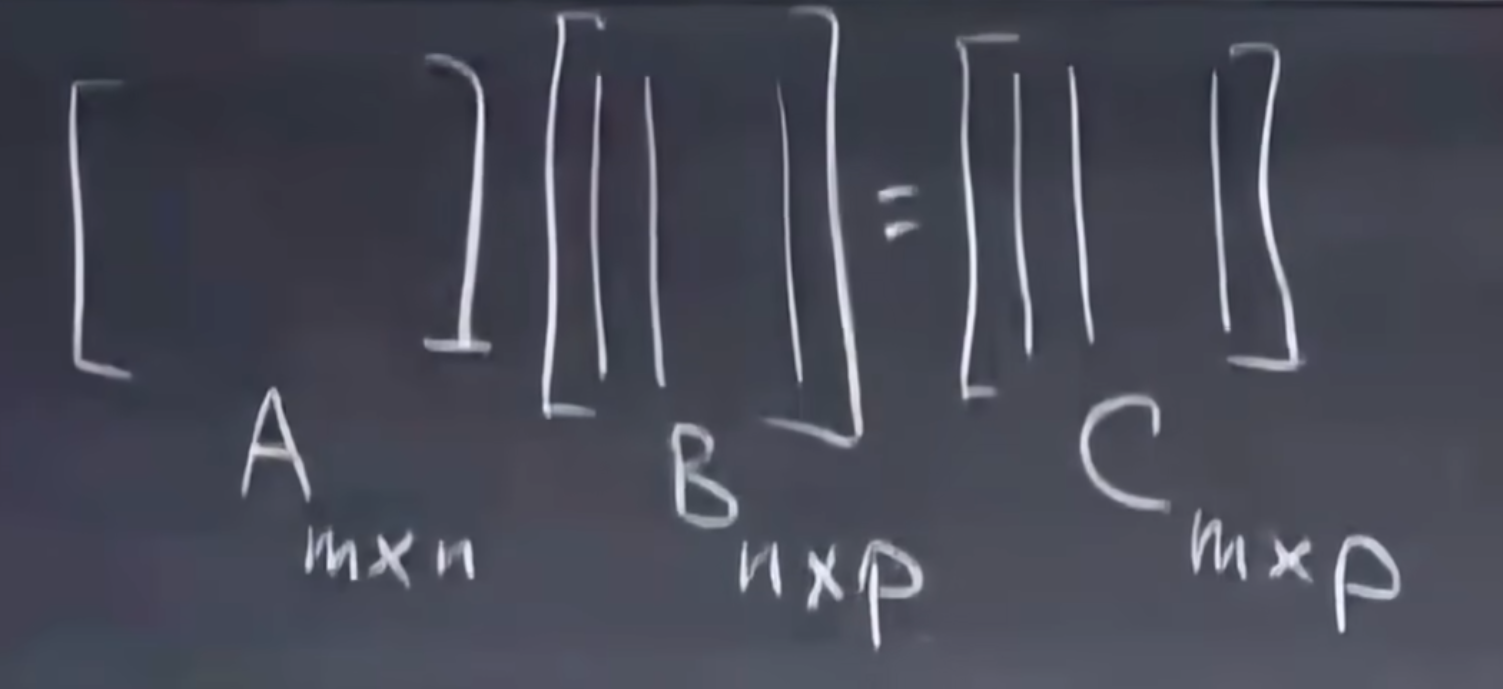 [ ] [ | | | ] = [ | | | ]
A m×n B n×p C m×p